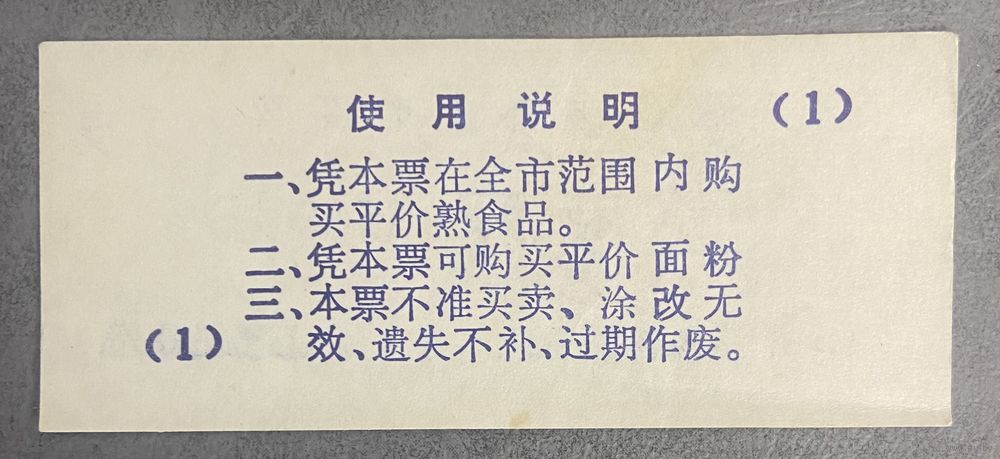 使用说明 （1）
一、凭本票在全市范围内购
买平价熟食品。
二、凭本票可购买平价面粉
三、本票不准买卖、涂改无
效、遗失不补、过期作废。
（1）